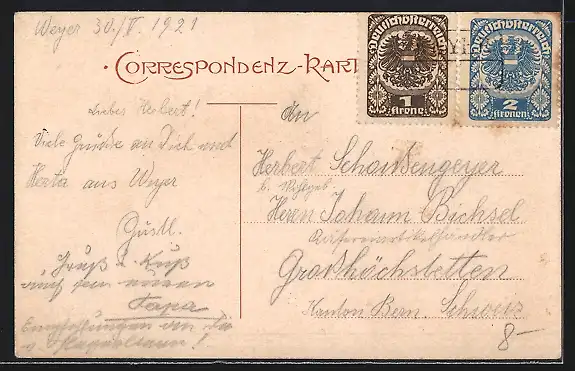 Weyer 30./V 1921
CORRESPONDENZ-KART
Deutschösterreich
1
Krone
Deutschösterreich
2
Kronen
Lieber Herbert!
Viele Grüsse an Dich und
Herta aus Weyer
Gustl.
Gruß u. Kuß
auch von
Papa
Empfehlungen an
An
Herbert
b.
Herrn Johann Bichsel
Großhöchstetten
Kanton Bern. Schweiz
8-